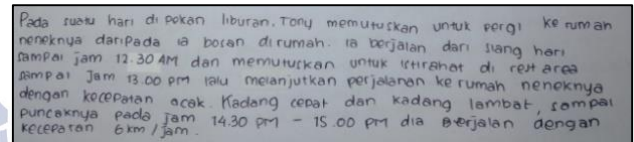 Pada suatu hari di pekan liburan, Tony memutuskan untuk pergi ke rumah
neneknya daripada ia bosan dirumah. ia berjalan dari siang hari
sampai jam 12.30 AM dan memutuskan untuk istirahat di rest area
sampai Jam 13.00 pm lalu melanjutkan perjalanan ke rumah neneknya
dengan kecepatan acak. Kadang cepat dan kadang lambat, sampai
puncaknya pada jam 14.30 pm - 15.00 pm dia berjalan dengan
kecepatan 6 km / jam.